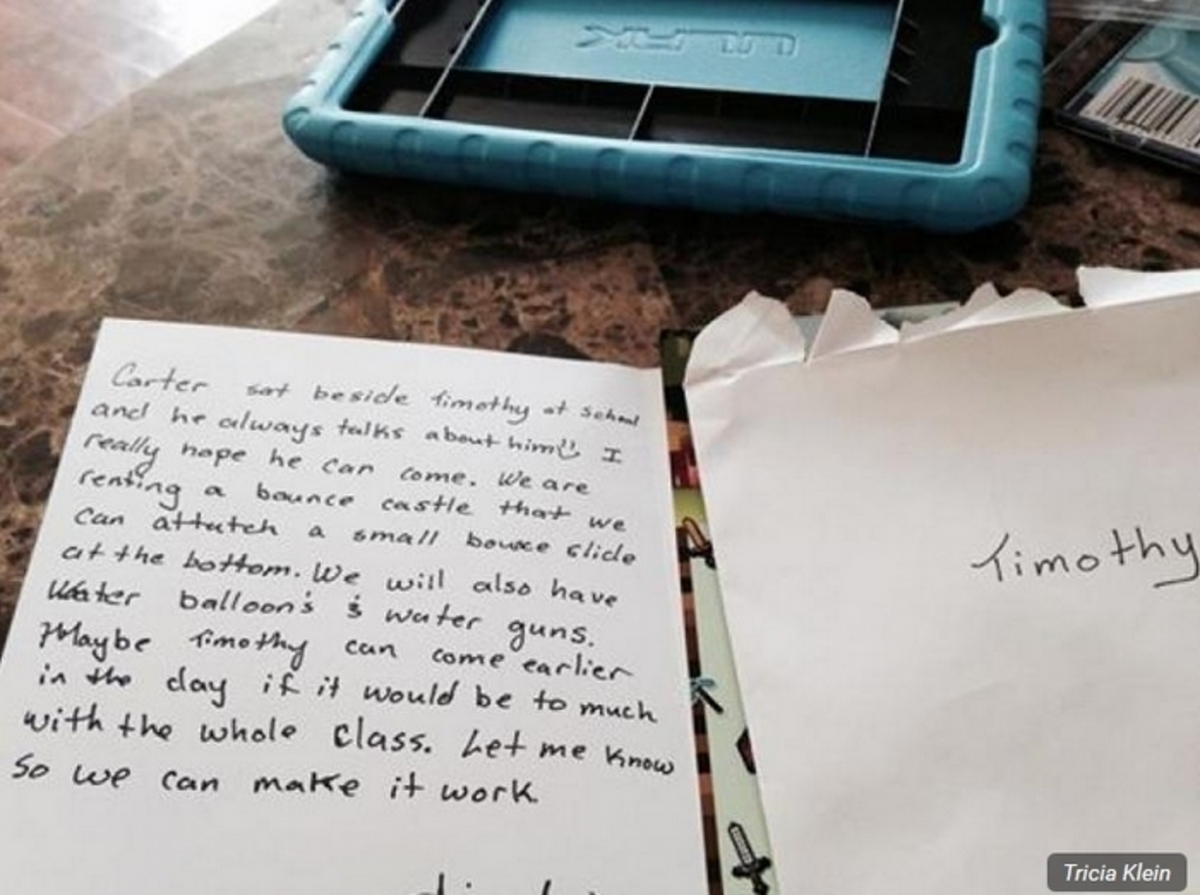 Carter sat beside Timothy at School
and he always talks about him I
really hope he can come. We are
renting a bounce castle that we
can attatch a small bounce slide
at the bottom. We will also have
Water balloon's & water guns.
Maybe Timothy can come earlier
in the day if it would be to much
with the whole class. Let me know
so we can make it work
Timothy
Tricia Klein